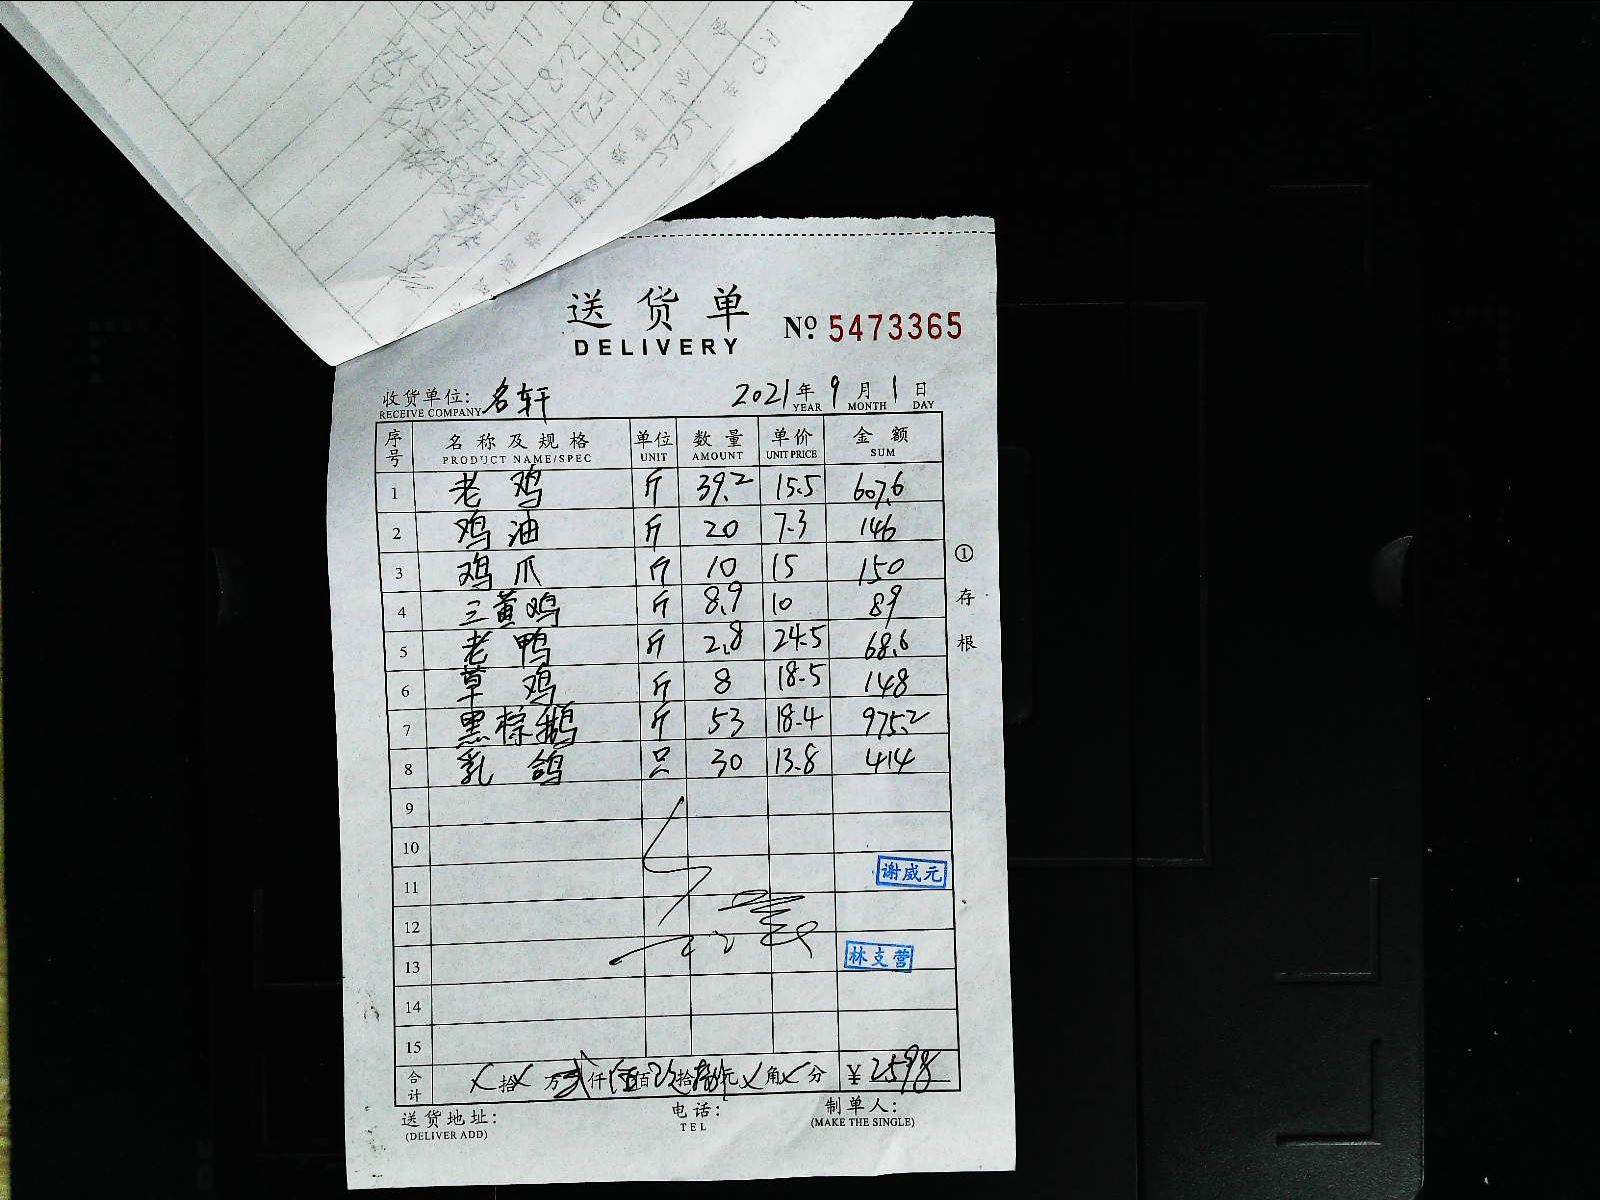 送货单
DELIVERY
Nº 5473365
收货单位: 名轩 2021年9月1日
RECEIVE COMPANY YEAR MONTH DAY
序号 名称及规格 单位 数量 单价 金额
PRODUCT NAME/SPEC UNIT AMOUNT UNIT PRICE SUM
1 老鸡 斤 39.2 15.5 607.6
2 鸡油 斤 20 7.3 146
3 鸡爪 斤 10 15 150
4 三黄鸡 斤 8.9 10 89
5 老鸭 斤 2.8 24.5 68.6
6 草鸡 斤 8 18.5 148
7 黑棕鹅 斤 53 18.4 975.2
8 乳鸽 只 30 13.8 414
9
10
11 谢威元
12
13 林支营
14
15
合计 X拾X万贰仟伍佰玖拾捌元X角X分 ¥2598
送货地址: 电话: 制单人:
(DELIVER ADD) TEL (MAKE THE SINGLE)
①存根